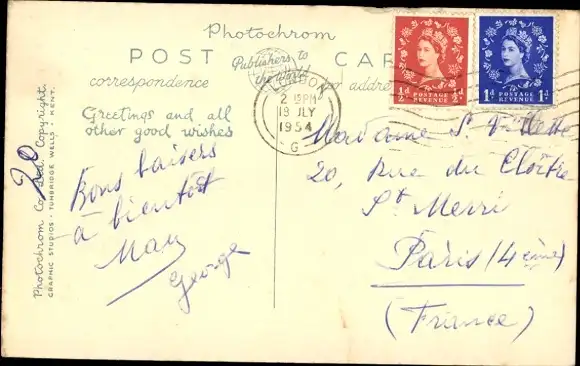 Photochrom
POST CARD
Publishers to
the World
correspondence
for address
Greetings and all
other good wishes
Photochrom Co. Ltd. Copyright.
GRAPHIC STUDIOS - TUNBRIDGE WELLS - KENT.
LONDON
2 15PM
19 JLY
1954
G
½d POSTAGE REVENUE ½d
1d POSTAGE REVENUE 1d
Bons baisers
à bientôt
George
Madame
20, Rue du Cloître
St Merri
Paris (4ème)
(France)